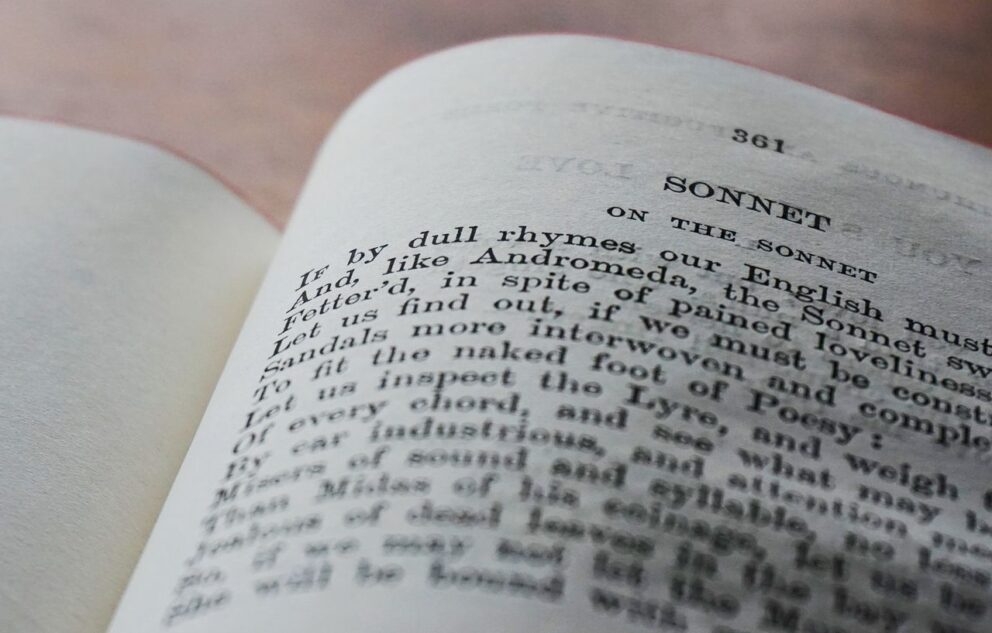 361
SONNET
ON THE SONNET
IF by dull rhymes our English must
And, like Andromeda, the Sonnet sw
Fetter'd, in spite of pained loveliness
Let us find out, if we must be constr
Sandals more interwoven and comple
To fit the naked foot of Poesy:
Let us inspect the Lyre, and weigh
Of every chord, and see what may b
By ear industrious, and attention me
Misers of sound and syllable, no less
Than Midas of his coinage, let us be
Jealous of dead leaves in the bay
So, if we may not let the Mu
She will be bound with